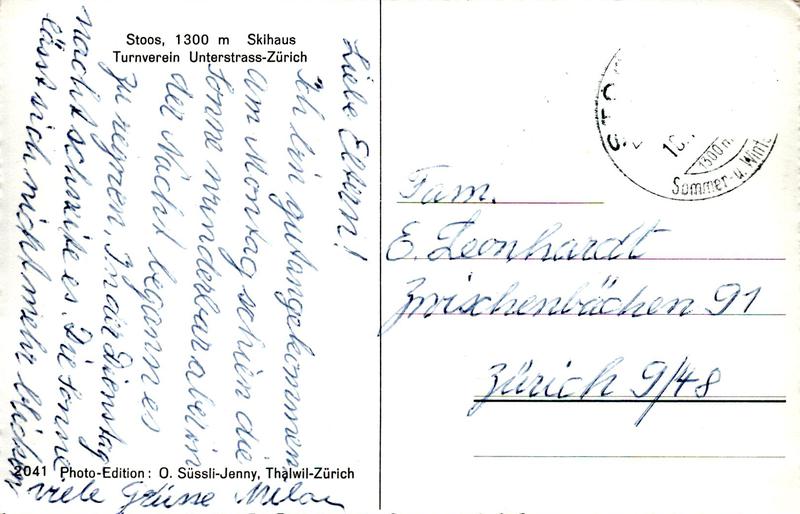 Stoos, 1300 m Skihaus
Turnverein Unterstrass-Zürich
Liebe Eltern!
Ich bin gut angekommen
am Montag schien die
Sonne wunderbar aber in
der Nacht begann es
zu regnen. In der Dienstag
nacht schneite es. Die Sonne
lässt sich nicht mehr blicken
viele Grüsse Milan
2041 Photo-Edition: O. Süssli-Jenny, Thalwil-Zürich
1300 m.
Sommer- u. Wint
Fam.
E. Leonhardt
Zwischenbächen 91
Zürich 9/48